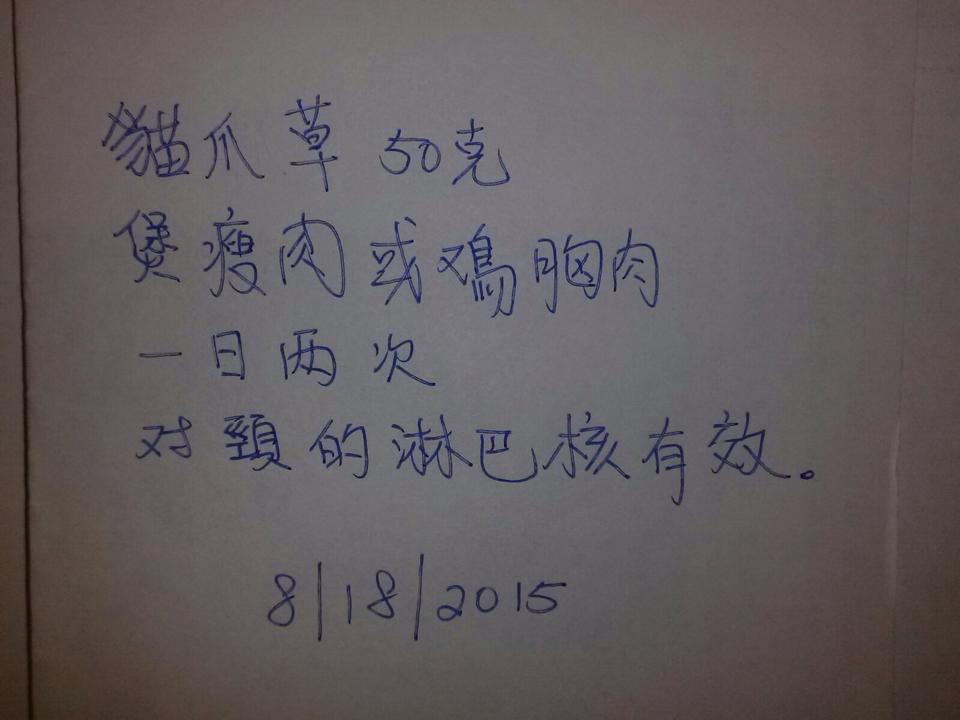 貓爪草 50克
煲瘦肉或鸡胸肉
一日两次
对頸的淋巴核有效。
8/18/2015